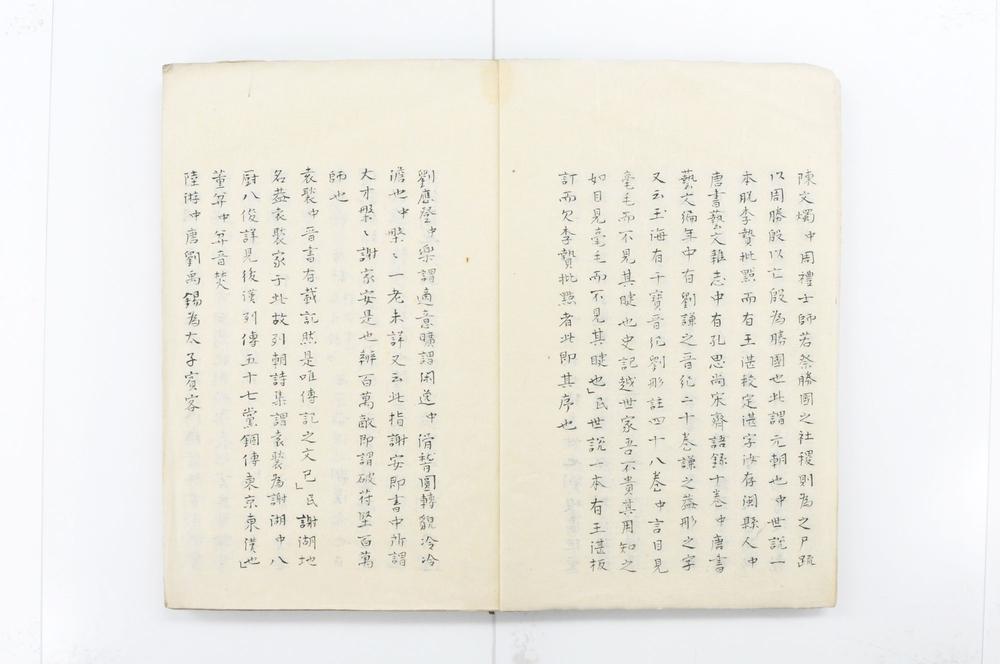 陳文燭中周禮士師若祭勝國之社稷則為之尸疏
以周勝殷以亡殷為勝國也此謂元朝也中世說一
本脫李贄批點而有王湛較定湛字汝存閩縣人中
唐書藝文雜志中有孔思尚宋齊語錄十巻中唐書
藝文編年中有劉謙之晋紀二十巻謙之蓋彤之字
又云玉海有干寶晋紀劉彤註四十八巻中言目見
毫毛而不見其睫也史記越世家吾不貴其用知之
如目見毫毛而不見其睫也」民世說一本有王湛板
訂而欠李贄批點者此即其序也
劉應登中樂謂適意曠謂閑逸中滑稽圓轉貌泠泠
澹也中槃〻一老未詳又云此指謝安即書中所謂
大才槃〻謝家安是也辦百萬敵即謂破苻堅百萬
師也
袁褧中晋書有載記然是唯傳記之文已」民謝湖地
名蓋袁褧家于此故列朝詩集謂袁褧為謝湖中八
厨八俊詳見後漢列傳五十七黨錮傳東京東漢也」
董弅中弅音焚
陸游中唐劉禹錫為太子賓客